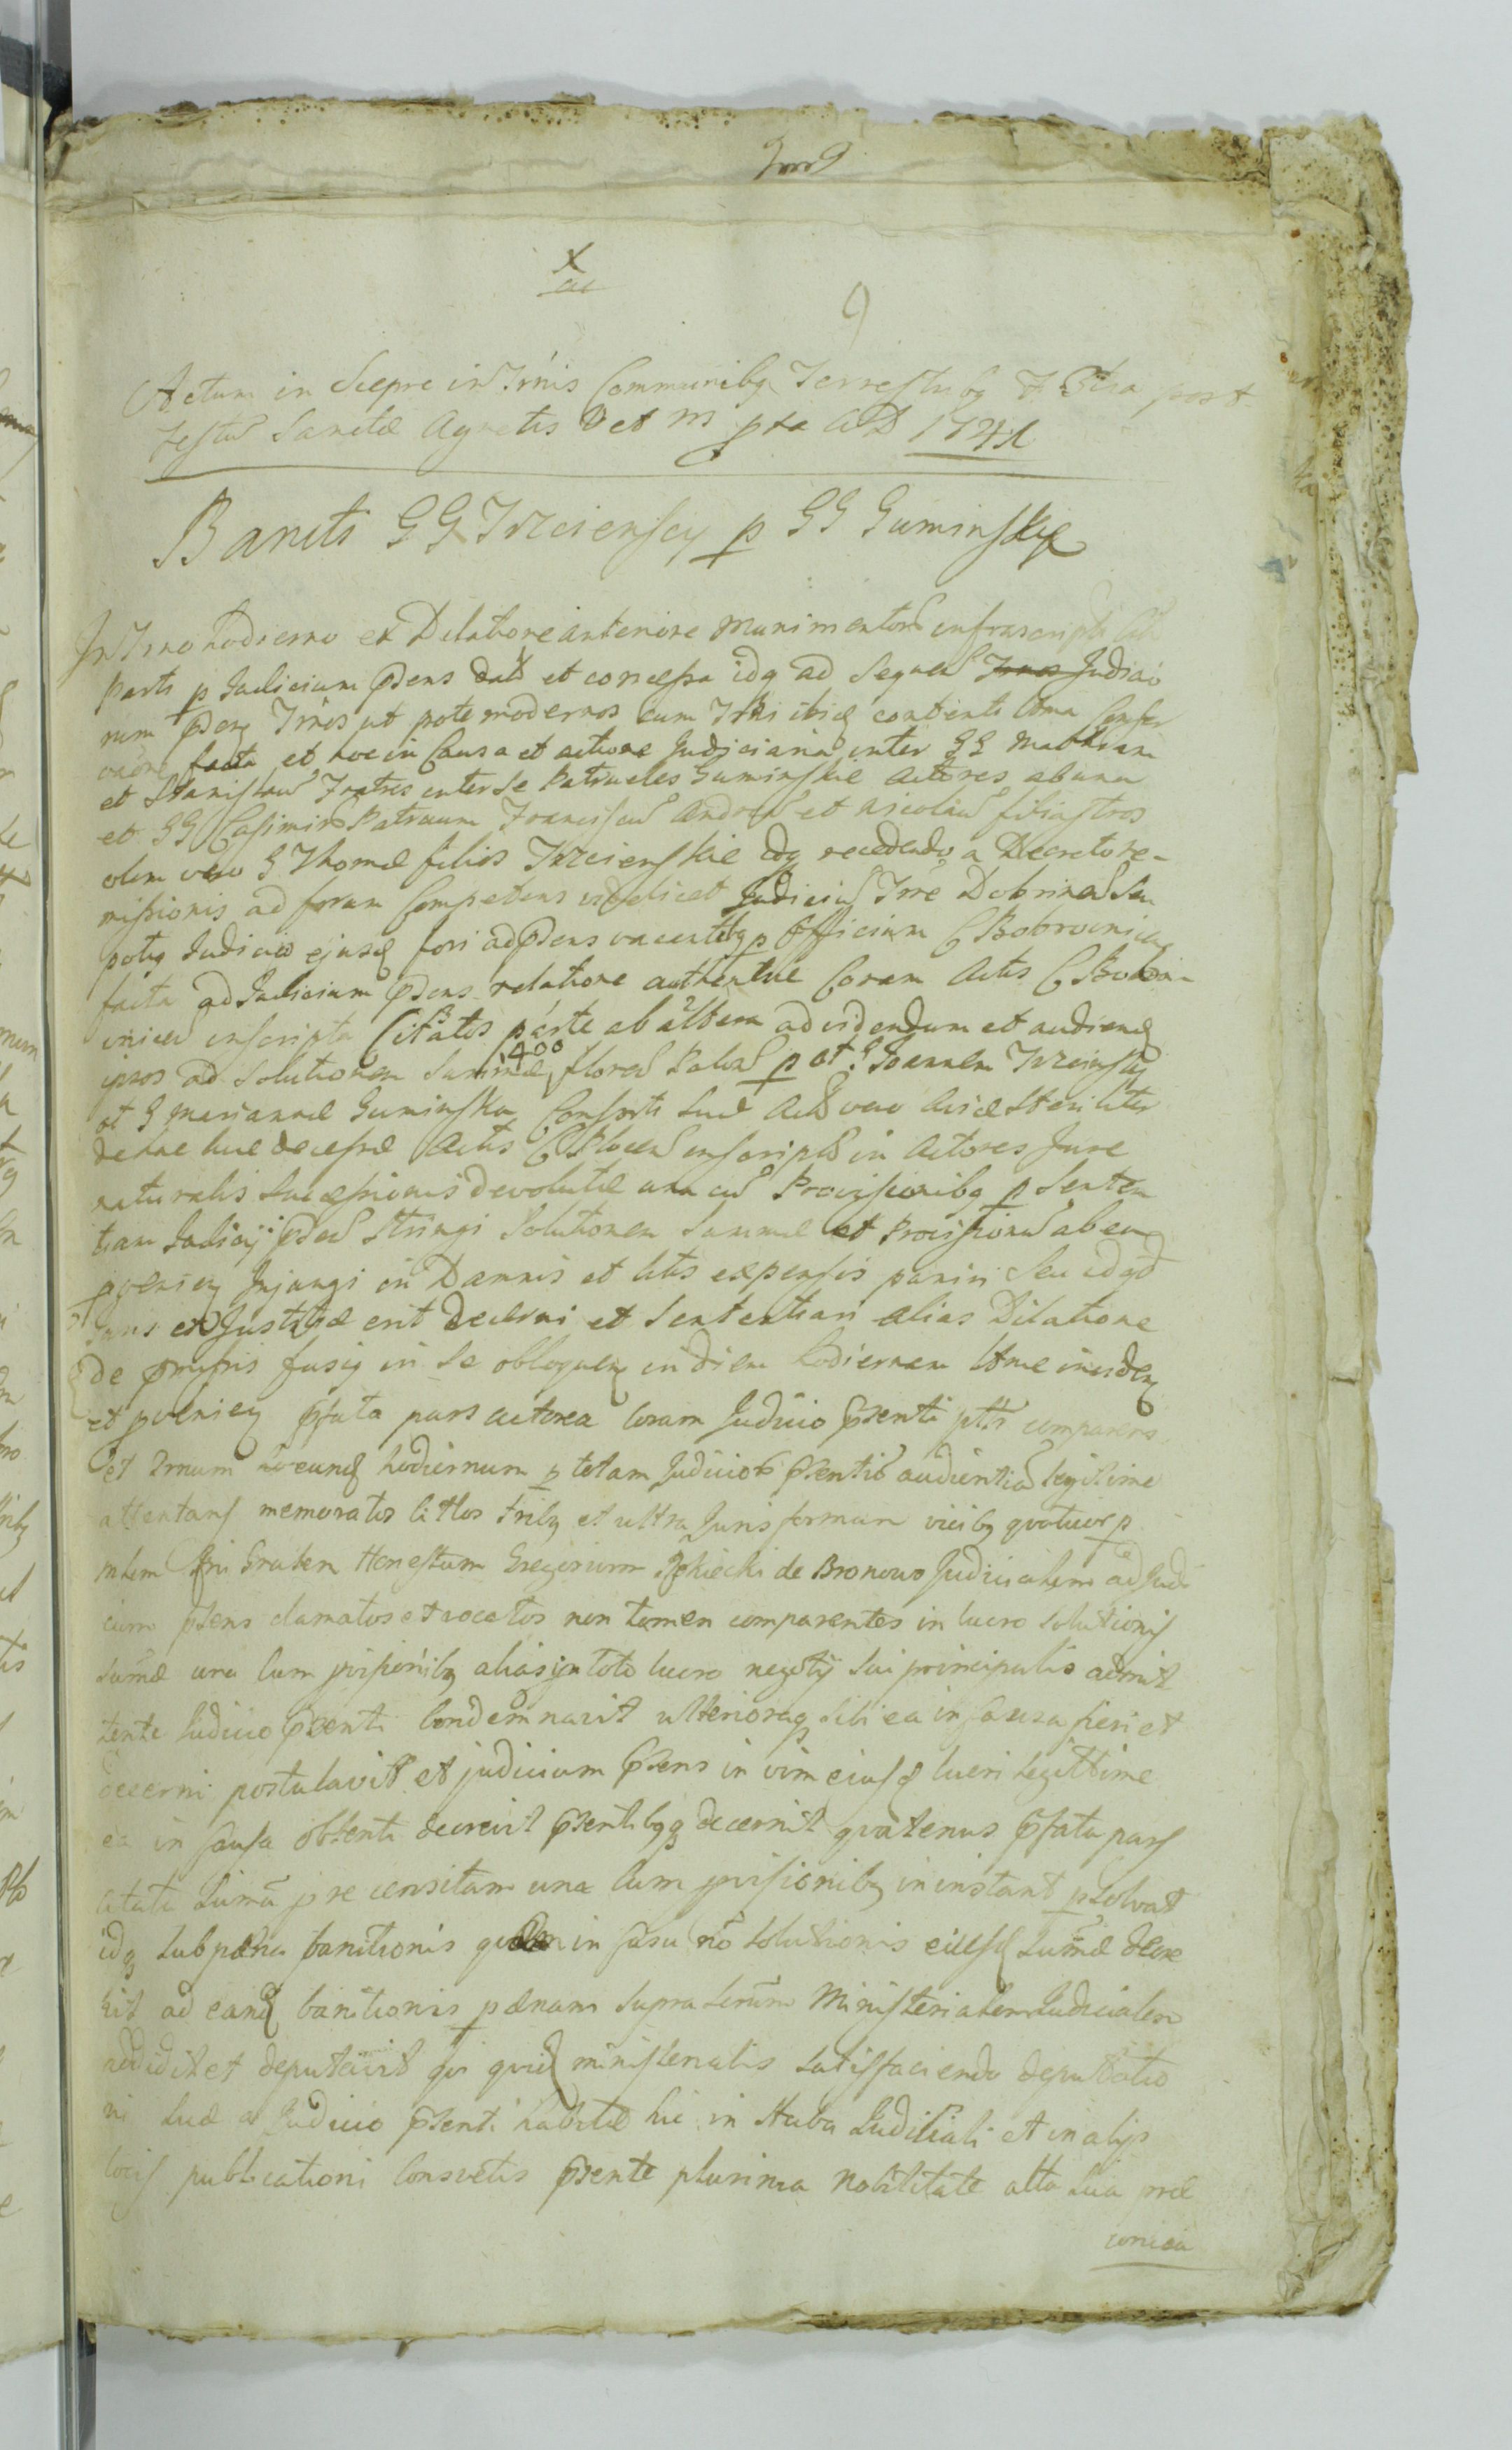 9
Actum in Scepre in Trnis Communibq Terrestribq F 3tia post
Festu Sanctæ Agnetis V et M pta AD 1741
Banits GG Trzciensey p GG Guminskie
In Trno hodierno ex Dilatione anteriore Munimentoru infrascripta
Parti p Judicium Psens data et concessa idq ad Sequen Judicio
rum Psens Trnos ut pote modernos cum Trni ibiq contenti
facta et hoc in Causa et actione Judiciaria inter GG Mathiam
et Stanislau Fratres inter se Patrueles Guminskie Actores ab una
et GG Casimiru Patruum Franciscu Andrea et Nicolau filiastros
olim vero G Thomæ filios Trzcienskie idq recedendo a Decreto re-
missionis ad forum Competens videlicet Judiciu Trre Dobrinen Seu
potiq Judicio ejusq fori ad Psens vacantibq p Officium C Bobrovnicen
facta ad Judicium Psens relatione authentice Coram Actis C Bobro-
vnicen inscripta Citatos parte ab altera ad videndum et audiendq
ipsos ad Solutionem Summæ 1400 floren Polon p ol G Joannem Trzcinski
ol G Mariannæ Guminska Consorti suæ
de hac luce decessæ Actis C Plocen inscripta in Actores Jure
naturalis Successionis devolutæ una cu Provisionibq p Senten
tiam Judicij Psen Stringi Solutionem Summæ et Provisionu ab ea
pvenien Injungi in Damnis et litis expensis puniri Seu id qd
Juris et Justitiæ erit decerni et Sententiari alias Dilatione
de pmissis fusiq in Se obloquen in diem hodiernam
et pvenien Pfata pars actorea Coram Judicio Psenti pttr comparens
et Trnum hodiernum p totam Judicior Psentis audientia legitime
attentans memoratos Citatos tribq et ultra Juris formam vicibq quatuor p
Mlem Honestum Gregorium de Bronowo Judicialem ad Judi
cium Psens clamatos et vocatos non tamen comparentes in lucro solutionis
sumæ una Cum pvisionibq alias in toto lucro negotij Sui principalis admit
tente Judicio Psenti Condemnavit ulterioraq Sibi ea in Causa fieri et
decerni postulavit et judicium Psens in vim eiusq lucri Legittime
ea in Causa obtenti decrevit Psentibqq decernit quatenus Pfata pars
citata Sumã precensitam una Cum pvisionibq in instanti psolvat
idq Sub pœna banitionis in Casu nõ Solutionis eiusq Sumæ decre
vit ad eandq banitionis pœnam Supra Scriptũ Ministerialem Judicialem
addidit et deputavit qui quidq ministerialis Satisfaciendo deputatio
ni Suæ a Judicio Psenti habitæ hic in Stuba Judiciali et in alijs
locis publicationi Consvetis Psente plurima Nobilitate alta Sua præ
conica